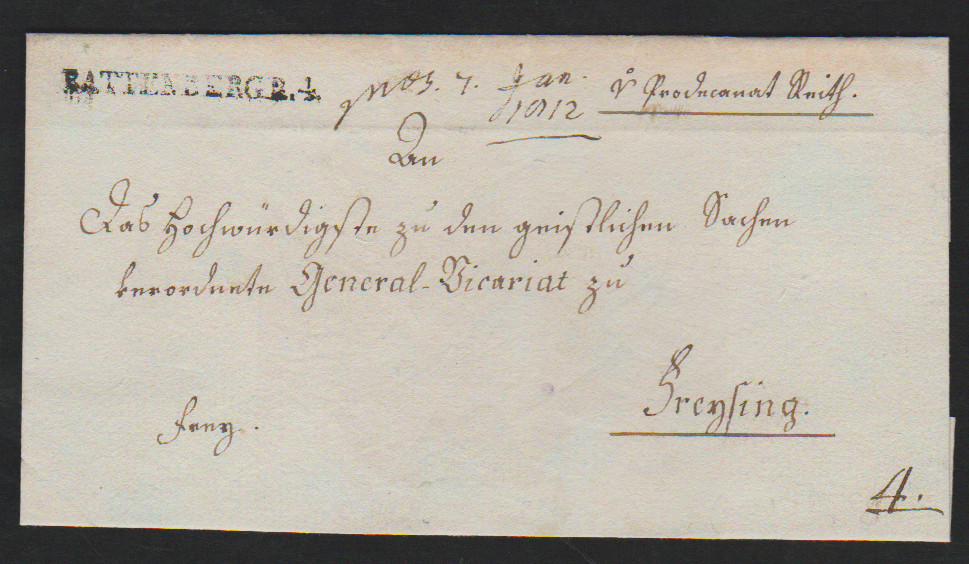 RATTENBERG R. 4.
7. Jan. 1812
Prodecanat Reith.
An
Das Hochwürdigste zu den geistlichen Sachen
verordnete General-Vicariat zu
Freysing.
frey.
4.